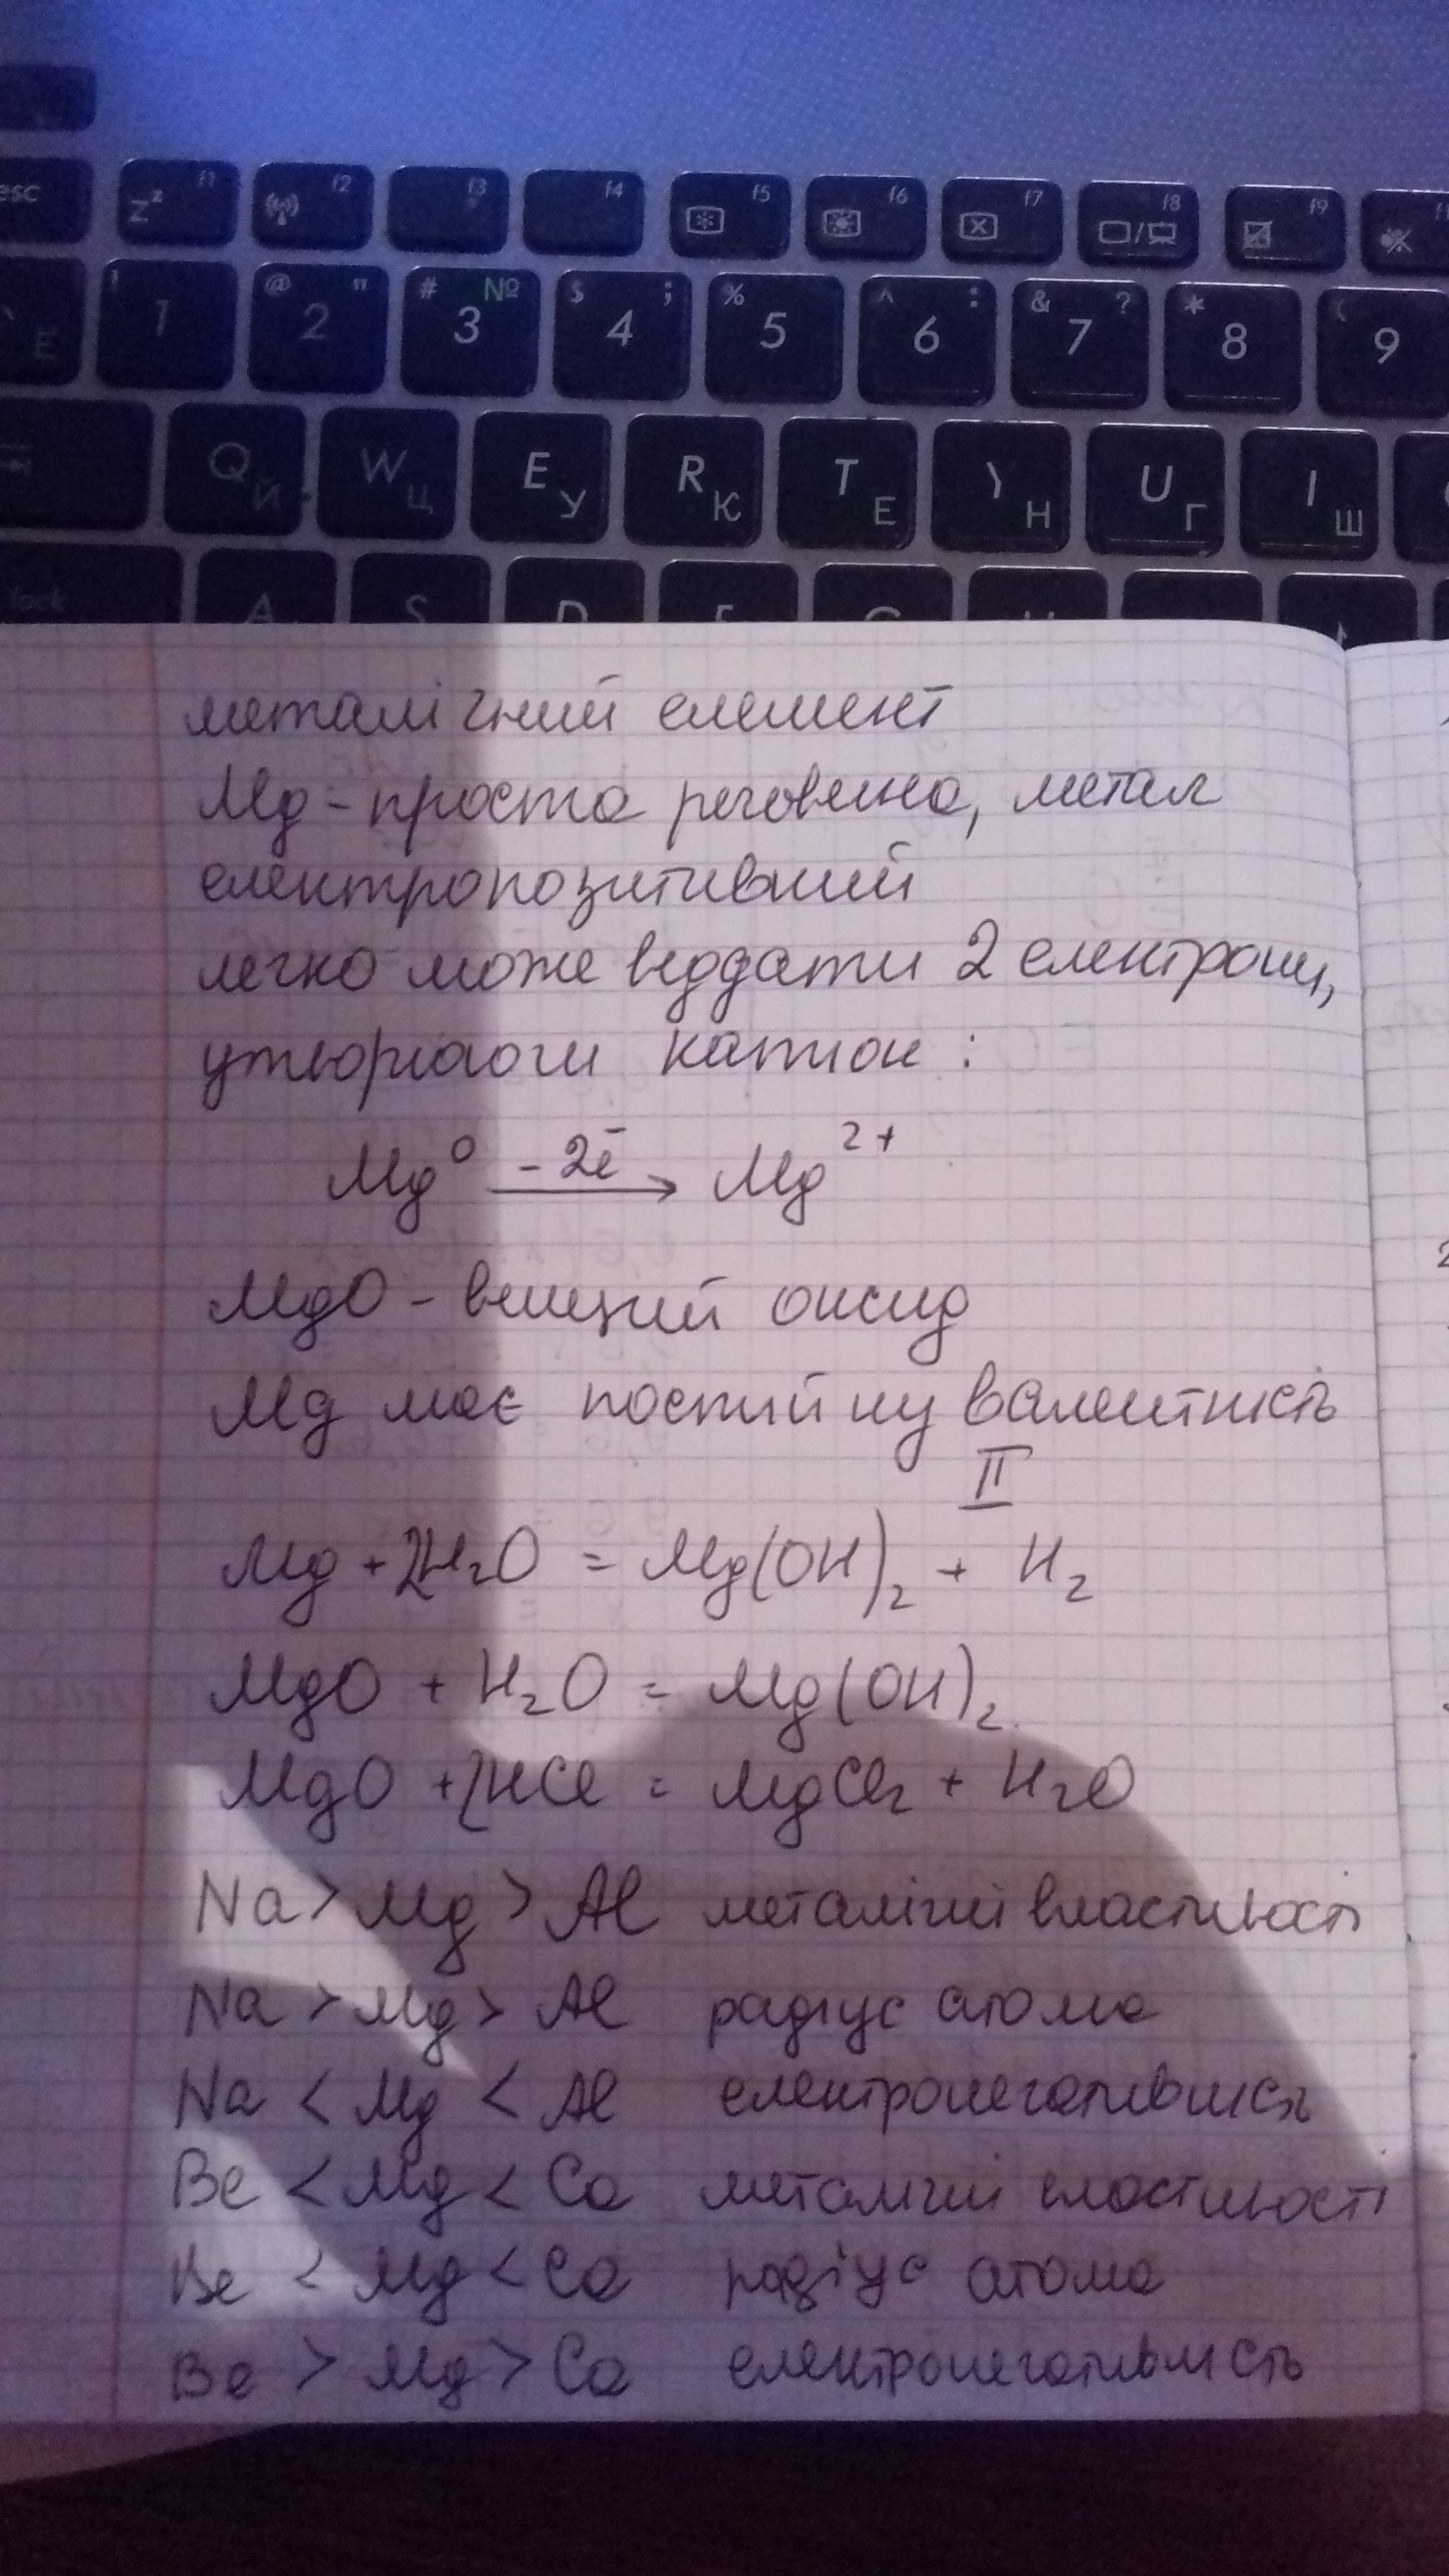 esc f1 f2 f3 f4 f5 f6 f7 f8 f9
z z
! 1 @ " 2 # № 3 $ ; 4 % 5 ^ : 6 & ? 7 * 8 ( 9
Q Й W Ц E У R К T Е Y Н U Г I Ш
lock A S D F G H
металічний елемент
Mg - проста речовина, метал
електропозитивний
легко може віддати 2 електрони,
утворюючи катіон :
Mg⁰ —-2ē→ Mg²⁺
MgO - вищий оксид
Mg має постійну валентність
II
Mg + 2H₂O = Mg(OH)₂ + H₂
MgO + H₂O = Mg(OH)₂
MgO + 2HCl = MgCl₂ + H₂O
Na > Mg > Al металічні властивості
Na > Mg > Al радіус атома
Na < Mg < Al електронегативність
Be < Mg < Ca металічні властивості
Be < Mg < Ca радіус атома
Be > Mg > Ca електронегативність